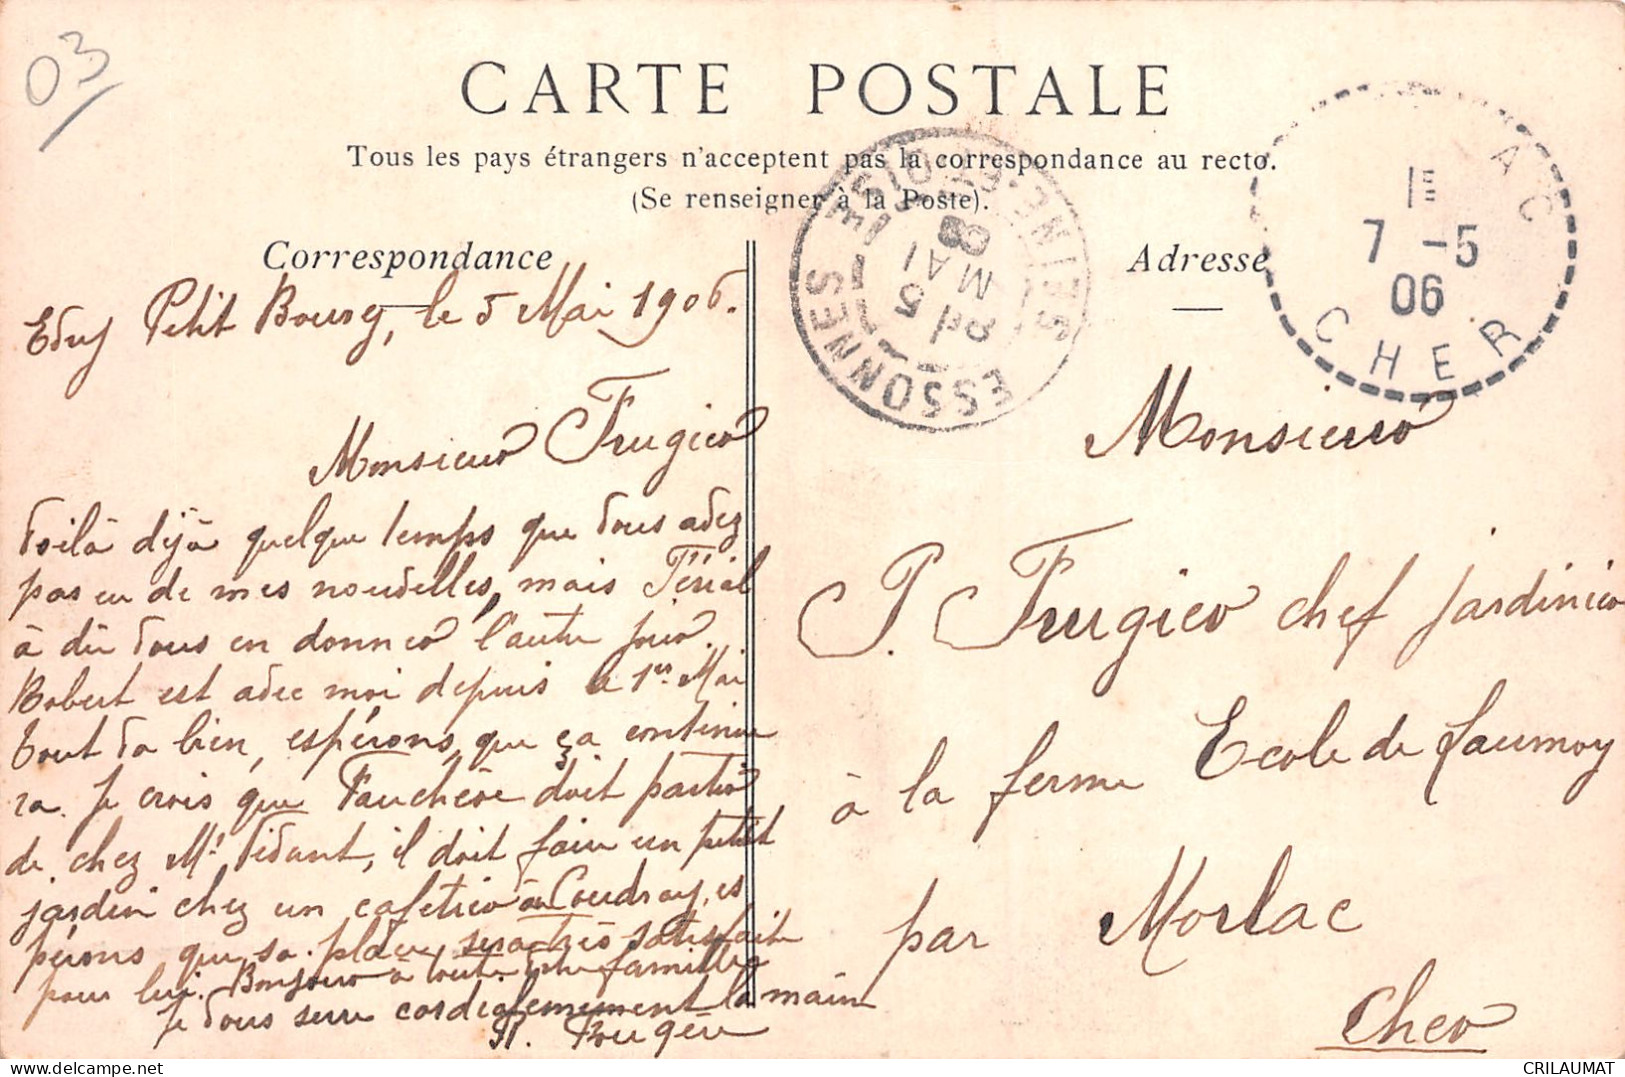 03
CARTE POSTALE
Tous les pays étrangers n'acceptent pas la correspondance au recto.
(Se renseigner à la Poste).
Correspondance
Adresse
ESSONNES
SEINE-ET-OISE
5 MAI
AC
CHER
1E
7 -5
06
Petit Bourg, le 5 Mai 1906.
Monsieur Frugier
Voilà déjà quelque temps que vous avez
pas eu de mes nouvelles, mais
à dû vous en donner l'autre jour.
Robert est avec moi depuis le 1er Mai
tout va bien, espérons que ça continue
ra. Je crois que Fauchère doit partir
de chez Mr Vidant, il doit faire un petit
jardin chez un cafetier au Coudray, es
pérons que sa place sera très satisfait
pour lui. Bonjour à toute votre famille
Je vous serre cordialement la main
Fougère
Monsieur
P. Frugier chef jardinier
à la ferme Ecole de Laumoy
par Morlac
Cher
CRILAUMAT